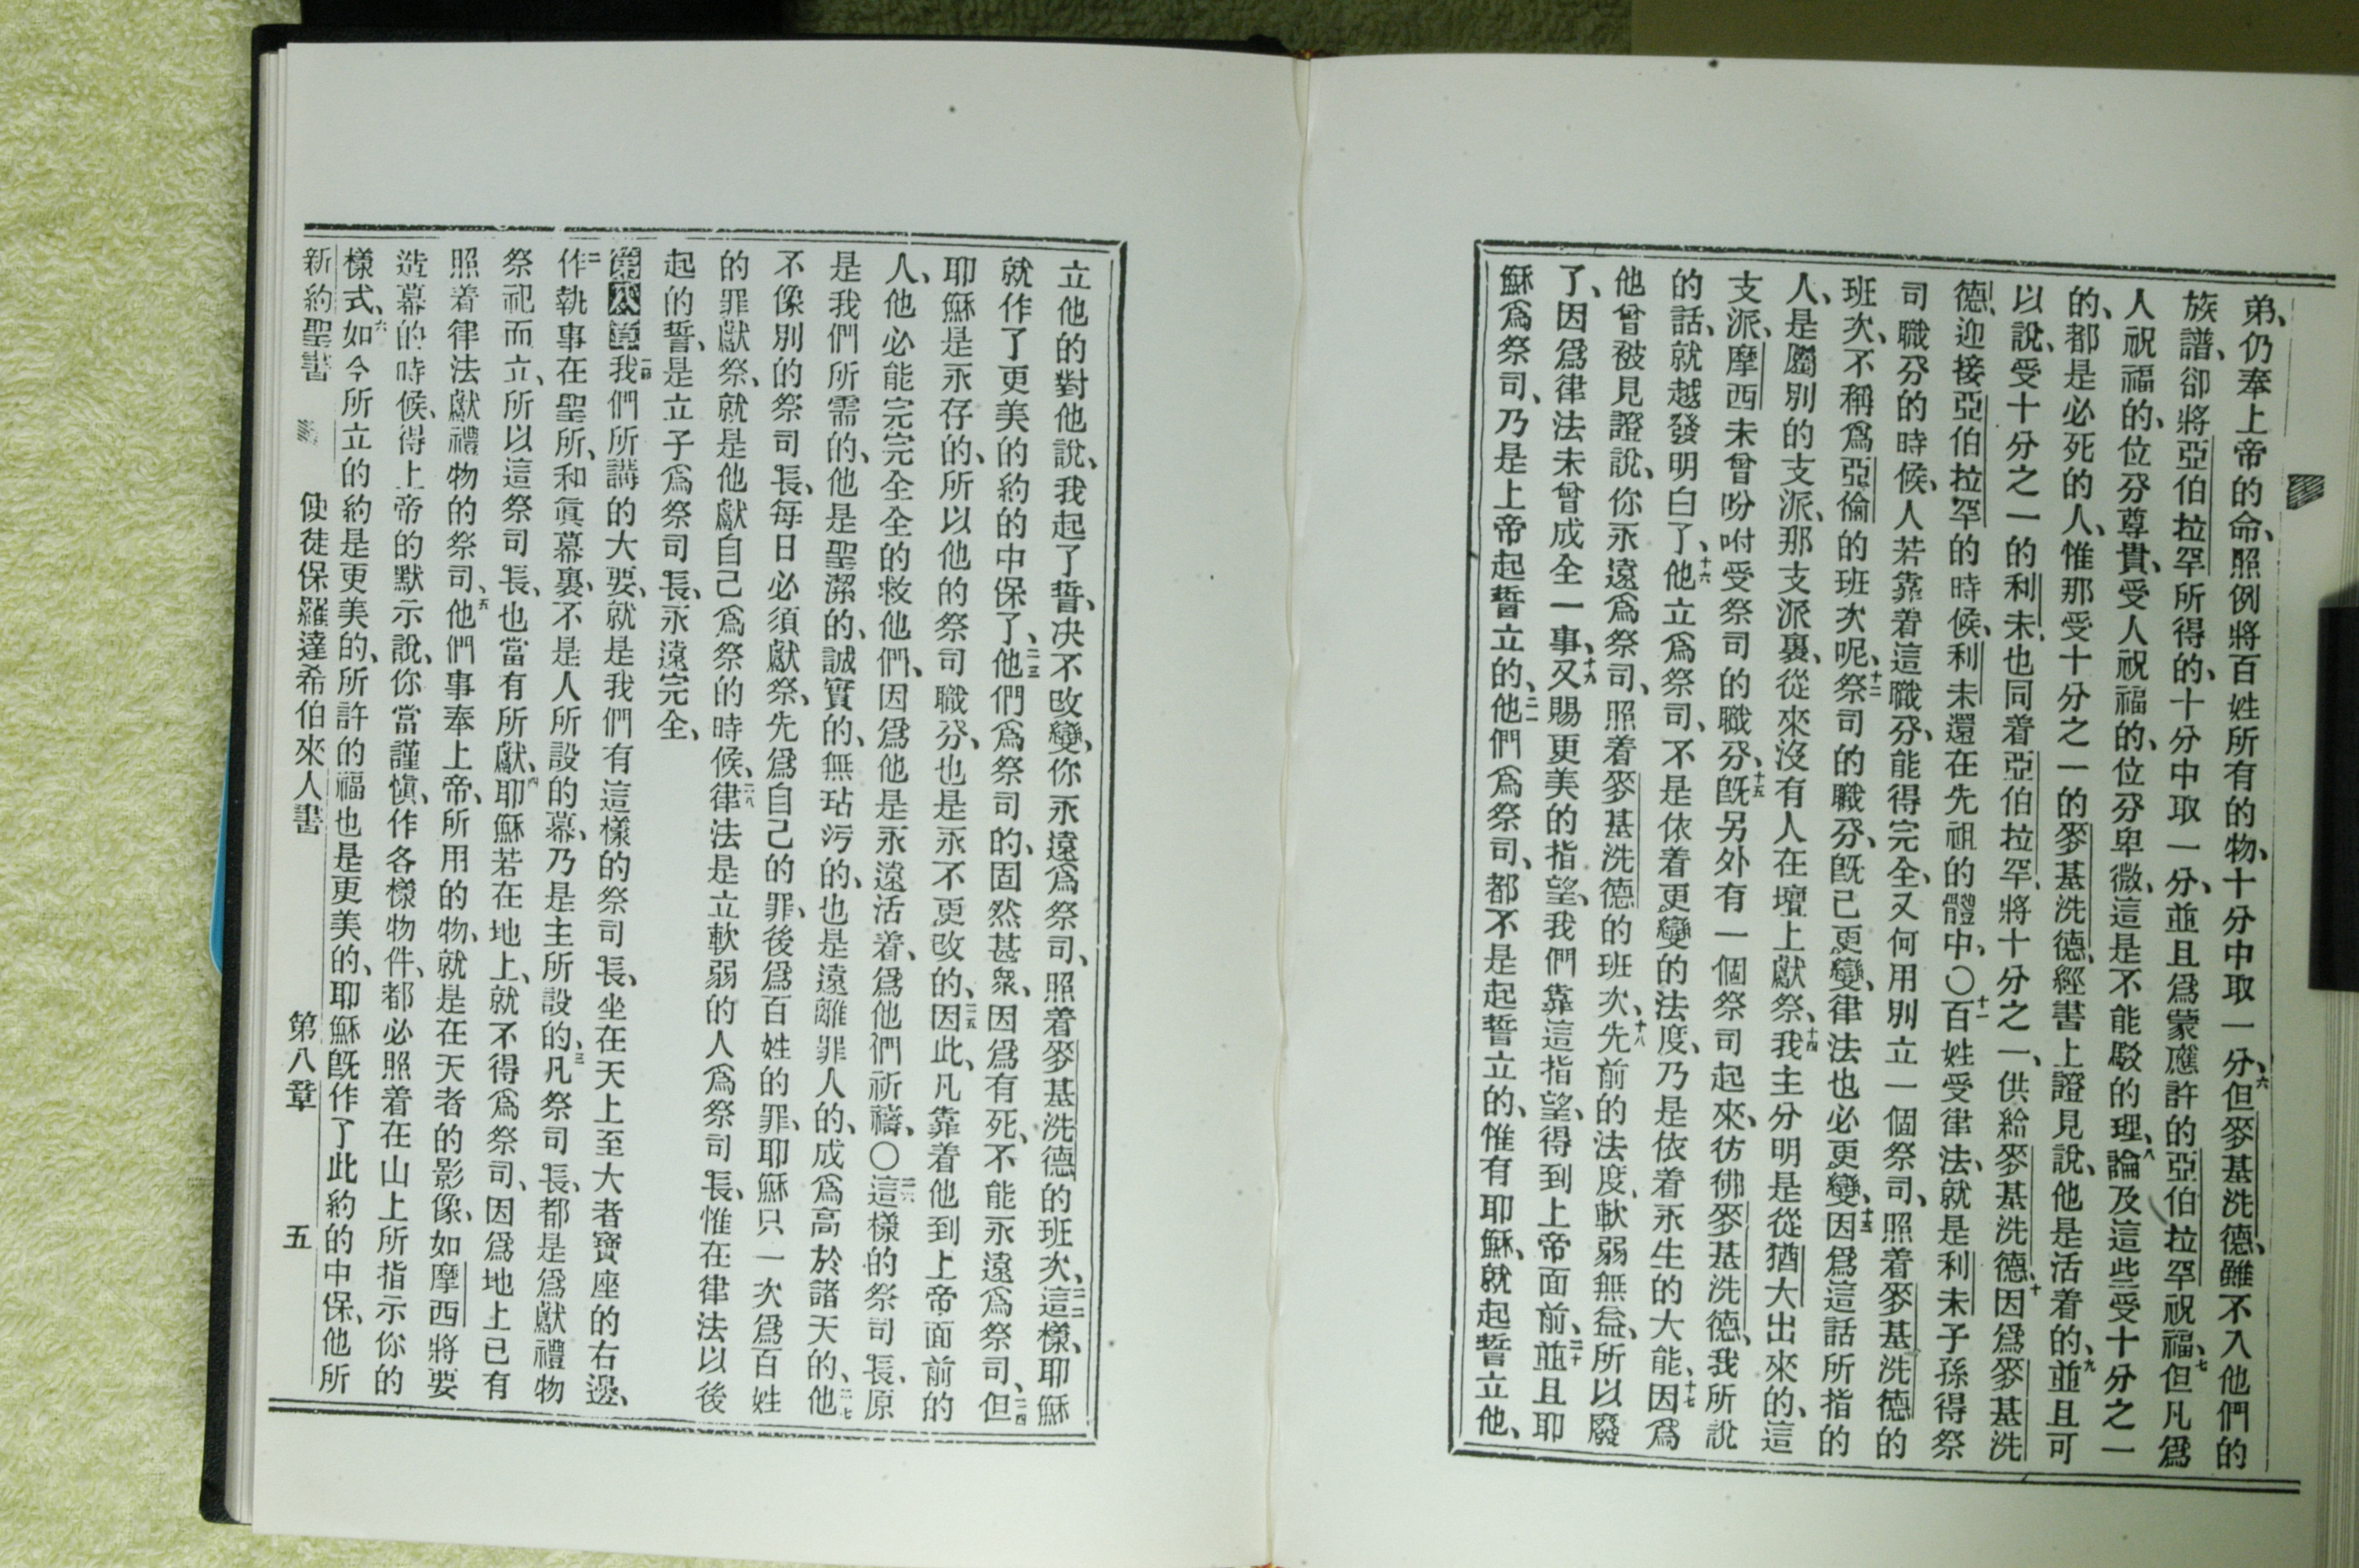 弟、仍奉上帝的命、照例將百姓所有的物、十分中取一分、六但麥基洗德、雖不入他們的
族譜、卻將亞伯拉罕所得的、十分中取一分、並且爲蒙應許的亞伯拉罕祝福、七但凡爲
人祝福的、位分尊貴、受人祝福的、位分卑微、這是不能駁的理、八論及這些受十分之一
的、都是必死的人、惟那受十分之一的麥基洗德、經書上證見說、他是活着的、九並且可
以說、受十分之一的利未、也同着亞伯拉罕、將十分之一、供給麥基洗德、十因爲麥基洗
德、迎接亞伯拉罕的時候、利未還在先祖的體中、〇十一百姓受律法、就是利未子孫得祭
司職分的時候、人若靠着這職分、能得完全、又何用別立一個祭司、照着麥基洗德的
班次、不稱爲亞倫的班次呢、十二祭司的職分、旣已更變、律法也必更變、十三因爲這話所指的
人、是屬別的支派、那支派裏、從來沒有人在壇上獻祭、十四我主分明是從猶大出來的、這
支派、摩西未曾吩咐受祭司的職分、十五旣另外有一個祭司起來、彷彿麥基洗德、我所說
的話、就越發明白了、十六他立爲祭司、不是依着更變的法度、乃是依着永生的大能、十七因爲
他曾被見證說、你永遠爲祭司、照着麥基洗德的班次、十八先前的法度、軟弱無益、所以廢
了、因爲律法未曾成全一事、十九又賜更美的指望、我們靠這指望、得到上帝面前、二十並且耶
穌爲祭司、乃是上帝起誓立的、二一他們爲祭司、都不是起誓立的、惟有耶穌、就起誓立他、
立他的對他說、我起了誓、决不改變、你永遠爲祭司、照着麥基洗德的班次、二二這樣、耶穌
就作了更美的約的中保了、二三他們爲祭司的、固然甚衆、因爲有死、不能永遠爲祭司、二四但
耶穌是永存的、所以他的祭司職分、也是永不更改的、二五因此、凡靠着他到上帝面前的
人、他必能完完全全的救他們、因爲他是永遠活着、爲他們祈禱、〇二六這樣的祭司長、原
是我們所需的、他是聖潔的、誠實的、無玷污的、也是遠離罪人的、成爲高於諸天的、二七他
不像別的祭司長、每日必須獻祭、先爲自己的罪、後爲百姓的罪、耶穌只一次爲百姓
的罪獻祭、就是他獻自己爲祭的時候、二八律法是立軟弱的人爲祭司長、惟在律法以後
起的誓、是立子爲祭司長、永遠完全、
第八章一節我們所講的大要、就是我們有這樣的祭司長、坐在天上至大者寶座的右邊、
二作執事在聖所、和眞幕裏、不是人所設的幕、乃是主所設的、三凡祭司長、都是爲獻禮物
祭祀而立、所以這祭司長、也當有所獻、四耶穌若在地上、就不得爲祭司、因爲地上已有
照着律法獻禮物的祭司、五他們事奉上帝、所用的物、就是在天者的影像、如摩西將要
造幕的時候、得上帝的默示說、你當謹愼、作各樣物件、都必照着在山上所指示你的
樣式、六如今所立的約、是更美的、所許的福也是更美的、耶穌旣作了此約的中保、他所
新約聖書　使徒保羅達希伯來人書　第八章　五